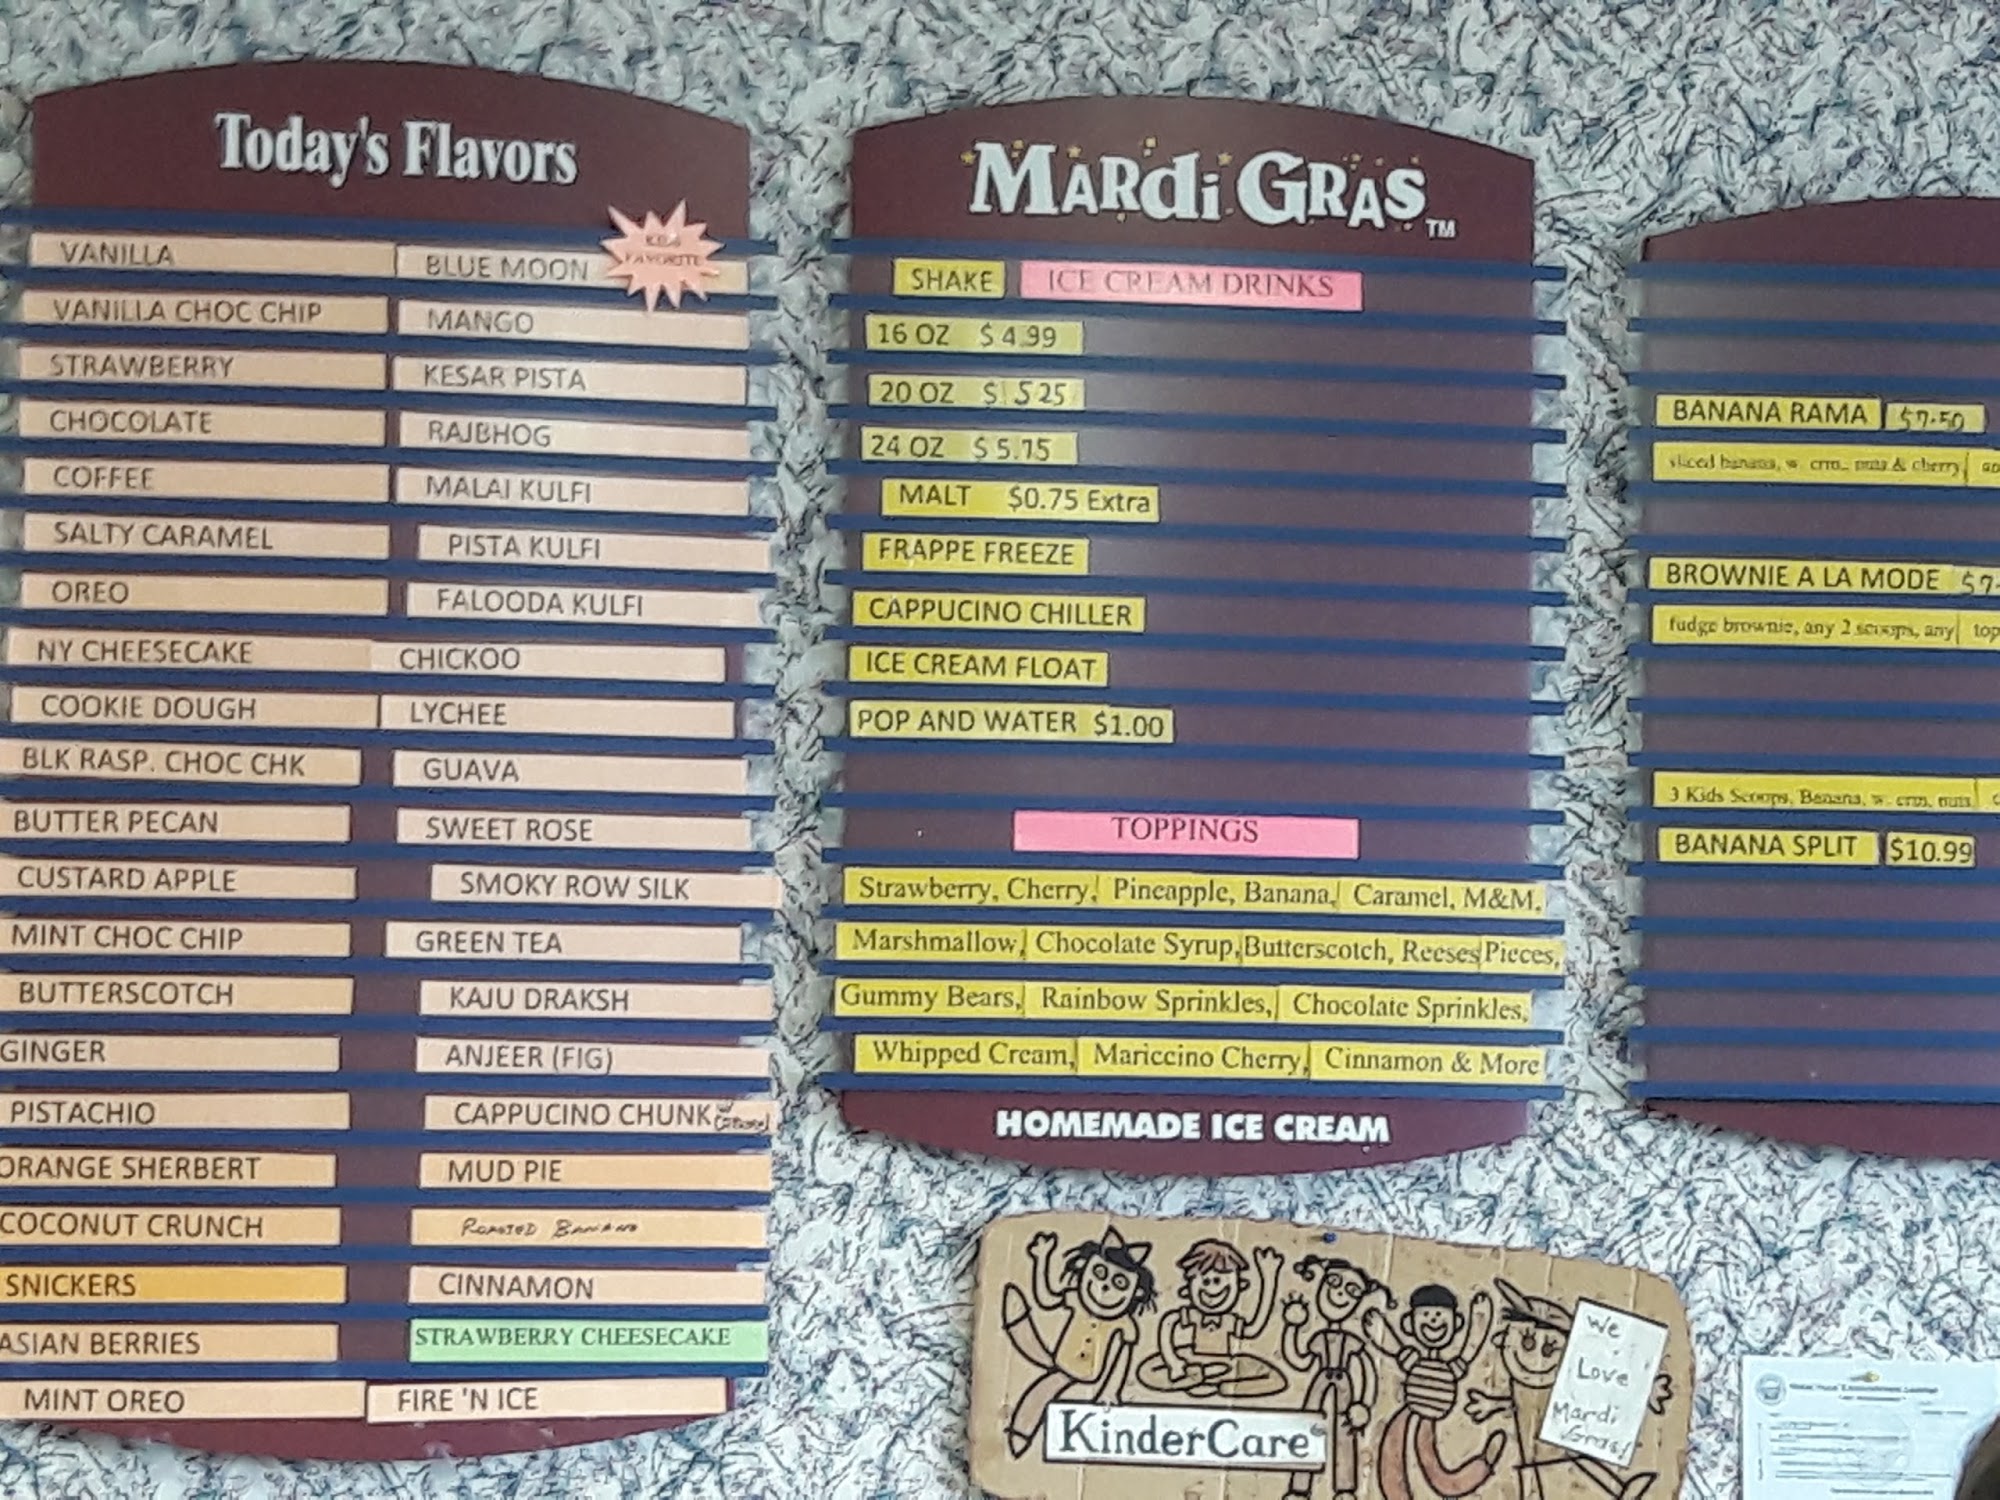 Today's Flavors
KIDS FAVORITE
VANILLA
VANILLA CHOC CHIP
STRAWBERRY
CHOCOLATE
COFFEE
SALTY CARAMEL
OREO
NY CHEESECAKE
COOKIE DOUGH
BLK RASP. CHOC CHK
BUTTER PECAN
CUSTARD APPLE
MINT CHOC CHIP
BUTTERSCOTCH
GINGER
PISTACHIO
ORANGE SHERBERT
COCONUT CRUNCH
SNICKERS
ASIAN BERRIES
MINT OREO
BLUE MOON
MANGO
KESAR PISTA
RAJBHOG
MALAI KULFI
PISTA KULFI
FALOODA KULFI
CHICKOO
LYCHEE
GUAVA
SWEET ROSE
SMOKY ROW SILK
GREEN TEA
KAJU DRAKSH
ANJEER (FIG)
CAPPUCINO CHUNK
MUD PIE
ROASTED BANANA
CINNAMON
STRAWBERRY CHEESECAKE
FIRE 'N ICE
MARDI GRAS TM
SHAKE ICE CREAM DRINKS
16 OZ $4.99
20 OZ $5.25
24 OZ $5.75
MALT $0.75 Extra
FRAPPE FREEZE
CAPPUCINO CHILLER
ICE CREAM FLOAT
POP AND WATER $1.00
TOPPINGS
Strawberry, Cherry, Pineapple, Banana, Caramel, M&M,
Marshmallow, Chocolate Syrup, Butterscotch, Reeses Pieces,
Gummy Bears, Rainbow Sprinkles, Chocolate Sprinkles,
Whipped Cream, Mariccino Cherry, Cinnamon & More
HOMEMADE ICE CREAM
BANANA RAMA $7.50
sliced banana, w. crm., nuts & cherry
BROWNIE A LA MODE $7.
fudge brownie, any 2 scoops, any top
3 Kids Scoops, Banana, w. crm, nuts,
BANANA SPLIT $10.99
KinderCare
We
Love
Mardi
Gras!